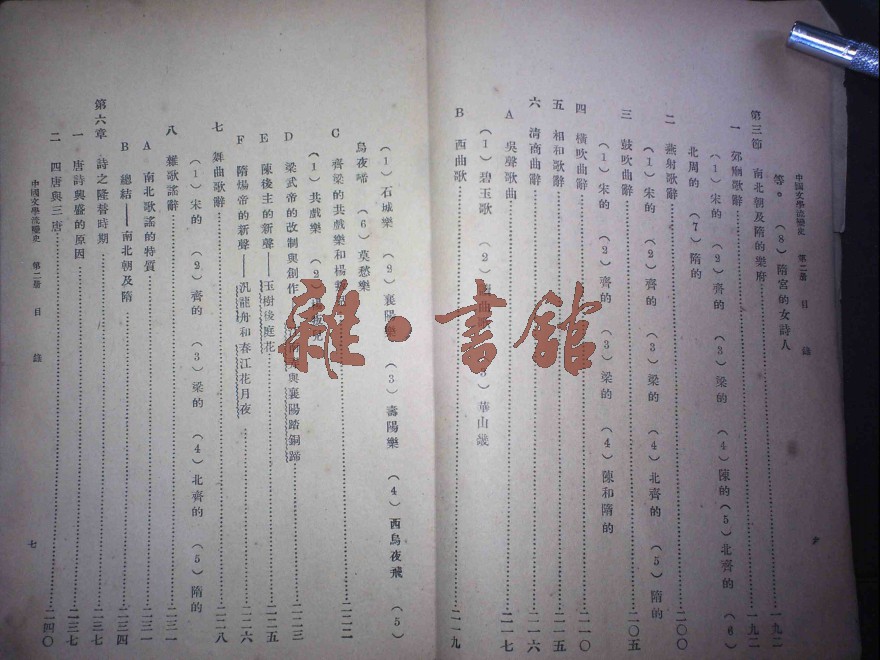 中國文學流變史 第二册 目錄
等。（8）隋宮的女詩人……一九二
第三節 南北朝及隋的樂府……一九二
一 郊廟歌辭
（1）宋的（2）齊的（3）梁的（4）陳的（5）北齊的（6）
北周的（7）隋的
二 燕射歌辭……二〇〇
（1）宋的（2）齊的（3）梁的（4）北齊的（5）隋的
三 鼓吹曲辭……二〇五
（1）宋的（2）齊的（3）梁的（4）陳和隋的
四 橫吹曲辭……二一〇
五 相和歌辭……二一五
六 淸商曲辭……二一六
A 吳聲歌曲……二一七
（1）碧玉歌（2）曲（3）華山畿
B 西曲歌……二一九
（1）石城樂（2）襄陽樂（3）壽陽樂（4）西烏夜飛（5）
烏夜啼（6）莫愁樂
C 齊梁的共戲樂和楊……二二二
（1）共戲樂（2）兒
D 梁武帝的改制與創作與襄陽踏銅蹄……二二三
E 陳後主的新聲——玉樹後庭花……二二五
F 隋煬帝的新聲——汎龍舟和春江花月夜……二二六
七 舞曲歌辭……二二八
（1）宋的（2）齊的（3）梁的（4）北齊的（5）隋的
八 雜歌謠辭……二三一
A 南北歌謠的特質……二三一
B 總結——南北朝及隋……二三四
第六章 詩之隆替時期……二三七
一 唐詩興盛的原因……二三七
二 四唐與三唐……二四〇
中國文學流變史 第二册 目錄
七
雜·書館